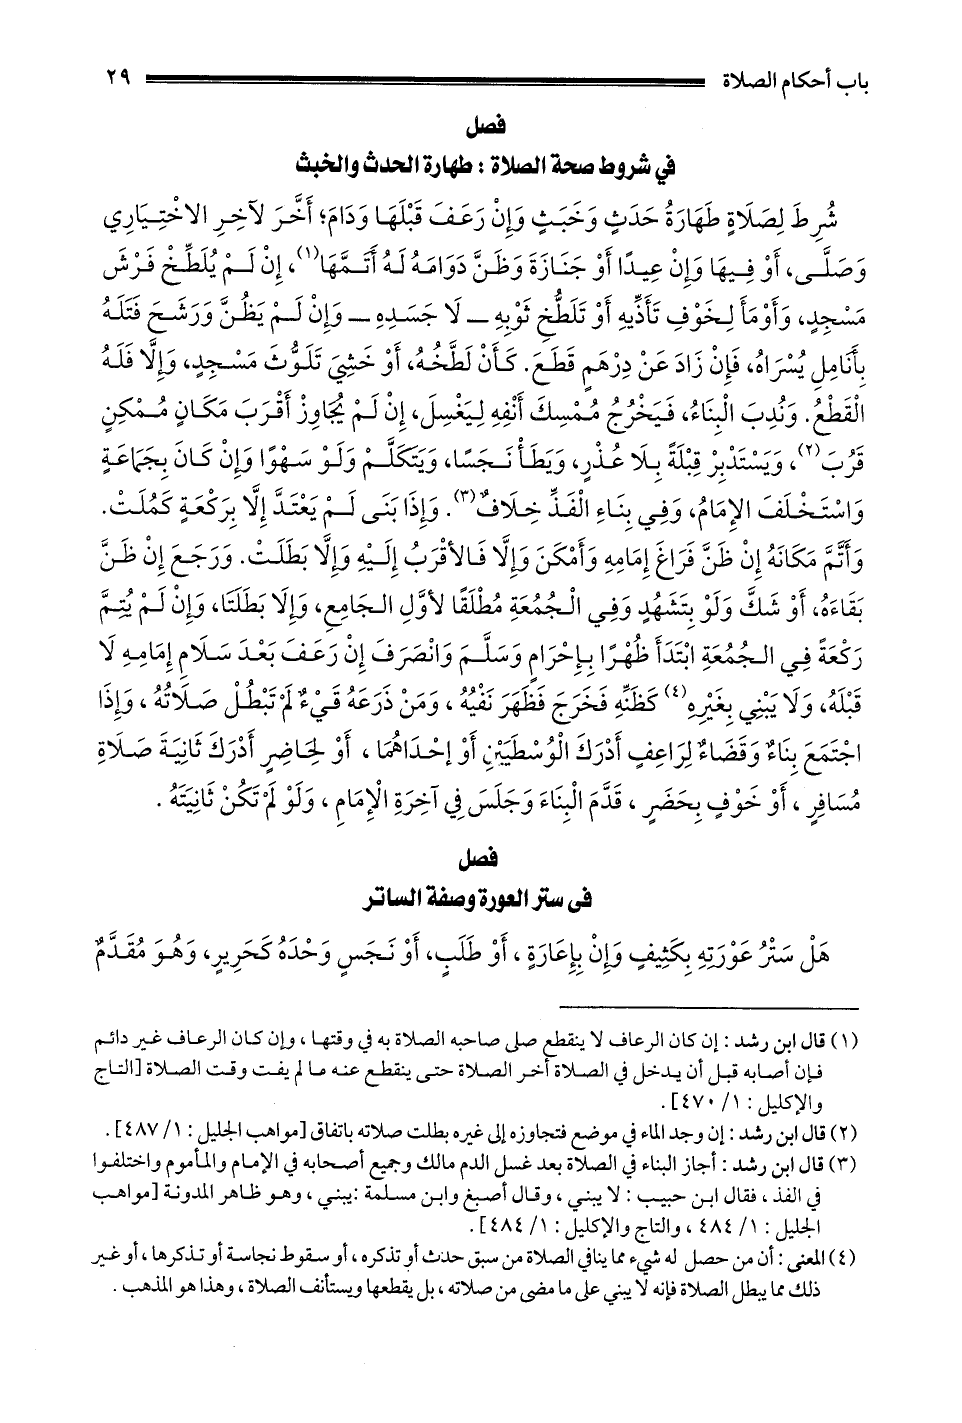 باب أحكام الصلاة ٢٩
فصل
في شروط صحة الصلاة : طهارة الحدث والخبث
شُرِطَ لِصَلَاةٍ طَهَارَةُ حَدَثٍ وَخَبَثٍ وَإِنْ رَعَفَ قَبْلَهَا وَدَامَ؛ أَخَّرَ لآخِرِ الاخْتِيَارِي
وَصَلَّى، أَوْ فِيهَا وَإِنْ عِيدًا أَوْ جَنَازَةَ وَظَنَّ دَوَامَهُ لَهُ أَتَمَّهَا(١)، إِنْ لَمْ يُلَطِّخْ فَرْشَ
مَسْجِدٍ، وَأَوْمَأَ لِخَوْفِ تَأَذِّيهِ أَوْ تَلَطُّخِ ثَوْبِهِ ــ لَا جَسَدِهِ ــ وَإِنْ لَمْ يَظُنَّ وَرَشَحَ فَتَلَهُ
بِأَنَامِلِ يُسْرَاهُ، فَإِنْ زَادَ عَنْ دِرْهَمٍ قَطَعَ. كَأَنْ لَطَّخَهُ، أَوْ خَشِيَ تَلَوُّثَ مَسْجِدٍ، وَإِلَّا فَلَهُ
الْقَطْعُ. وَنُدِبَ الْبِنَاءُ، فَيَخْرُجُ مُمْسِكَ أَنْفِهِ لِيَغْسِلَ، إِنْ لَمْ يُجَاوِزْ أَقْرَبَ مَكَانٍ مُمْكِنٍ
قَرُبَ(٢)، وَيَسْتَدْبِرْ قِبْلَةً بِلَا عُذْرٍ، وَيَطَأْ نَجَسًا، وَيَتَكَلَّمْ وَلَوْ سَهْوًا وَإِنْ كَانَ بِجَمَاعَةٍ
وَاسْتَخْلَفَ الإِمَامُ، وَفِي بِنَاءِ الْفَذِّ خِلَافٌ(٣). وَإِذَا بَنَى لَمْ يَعْتَدَّ إِلَّا بِرَكْعَةٍ كَمُلَتْ.
وَأَتَّمَّ مَكَانَهُ إِنْ ظَنَّ فَرَاغَ إِمَامِهِ وَأَمْكَنَ وَإِلَّا فَالأَقْرَبُ إِلَيْهِ وَإِلَّا بَطَلَتْ. وَرَجَعَ إِنْ ظَنَّ
بَقَاءَهُ، أَوْ شَكَّ وَلَوْ بِتَشَهُّدٍ وَفِي الْجُمُعَةِ مُطْلَقًا لأَوَّلِ الجَامِعِ، وَإِلَا بَطَلَتَا، وَإِنْ لَمْ يُتِمَّ
رَكْعَةً فِي الجُمُعَةِ ابْتَدَأَ ظُهْرًا بِإِحْرَامٍ وَسَلَّمَ وَانْصَرَفَ إِنْ رَعَفَ بَعْدَ سَلَامِ إِمَامِهِ لَا
قَبْلَهُ، وَلَا يَبْنِي بِغَيْرِهِ(٤) كَظَنِّهِ فَخَرَجَ فَظَهَرَ نَفْيُهُ ، وَمَنْ ذَرَعَهُ قَيْءٌ لَمْ تَبْطُلْ صَلَاتُهُ ، وَإِذَا
اجْتَمَعَ بِنَاءٌ وَقَضَاءٌ لِرَاعِفٍ أَدْرَكَ الْوُسْطَيَيْنِ أَوْ إِحْدَاهُمَا ، أَوْ لِحَاضِرٍ أَدْرَكَ ثَانِيَةَ صَلَاةِ
مُسَافِرٍ ، أَوْ خَوْفٍ بِحَضَرٍ ، قَدَّمَ الْبِنَاءَ وَجَلَسَ فِي آخِرَةِ الْإِمَامِ ، وَلَوْ لَمْ تَكُنْ ثَانِيَتَهُ .
فصل
في ستر العورة وصفة الساتر
هَلْ سَتْرُ عَوْرَتِهِ بِكَثِيفٍ وَإِنْ بِإِعَارَةٍ ، أَوْ طَلَبٍ، أَوْ نَجَسٍ وَحْدَهُ كَحَرِيرٍ، وَهُوَ مُقَدَّمٌ
(١) قال ابن رشد : إن كان الرعاف لا ينقطع صلى صاحبه الصلاة به في وقتها ، وإن كان الرعاف غير دائم
فإن أصابه قبل أن يدخل في الصلاة أخر الصلاة حتى ينقطع عنه ما لم يفت وقت الصلاة [التاج
والإكليل : ١/ ٤٧٠].
(٢) قال ابن رشد : إن وجد الماء في موضع فتجاوزه إلى غيره بطلت صلاته باتفاق [مواهب الجليل : ١/ ٤٨٧].
(٣) قال ابن رشد : أجاز البناء في الصلاة بعد غسل الدم مالك وجميع أصحابه في الإمام والمأموم واختلفوا
في الفذ ، فقال ابن حبيب : لا يبني ، وقال أصبغ وابن مسلمة :يبني ، وهو ظاهر المدونة [مواهب
الجليل : ١/ ٤٨٤ ، والتاج والإكليل : ١/ ٤٨٤].
(٤) المعنى : أن من حصل له شيء مما ينافي الصلاة من سبق حدث أو تذكره ، أو سقوط نجاسة أو تذكرها ، أو غير
ذلك مما يبطل الصلاة فإنه لا يبني على ما مضى من صلاته ، بل يقطعها ويستأنف الصلاة ، وهذا هو المذهب .